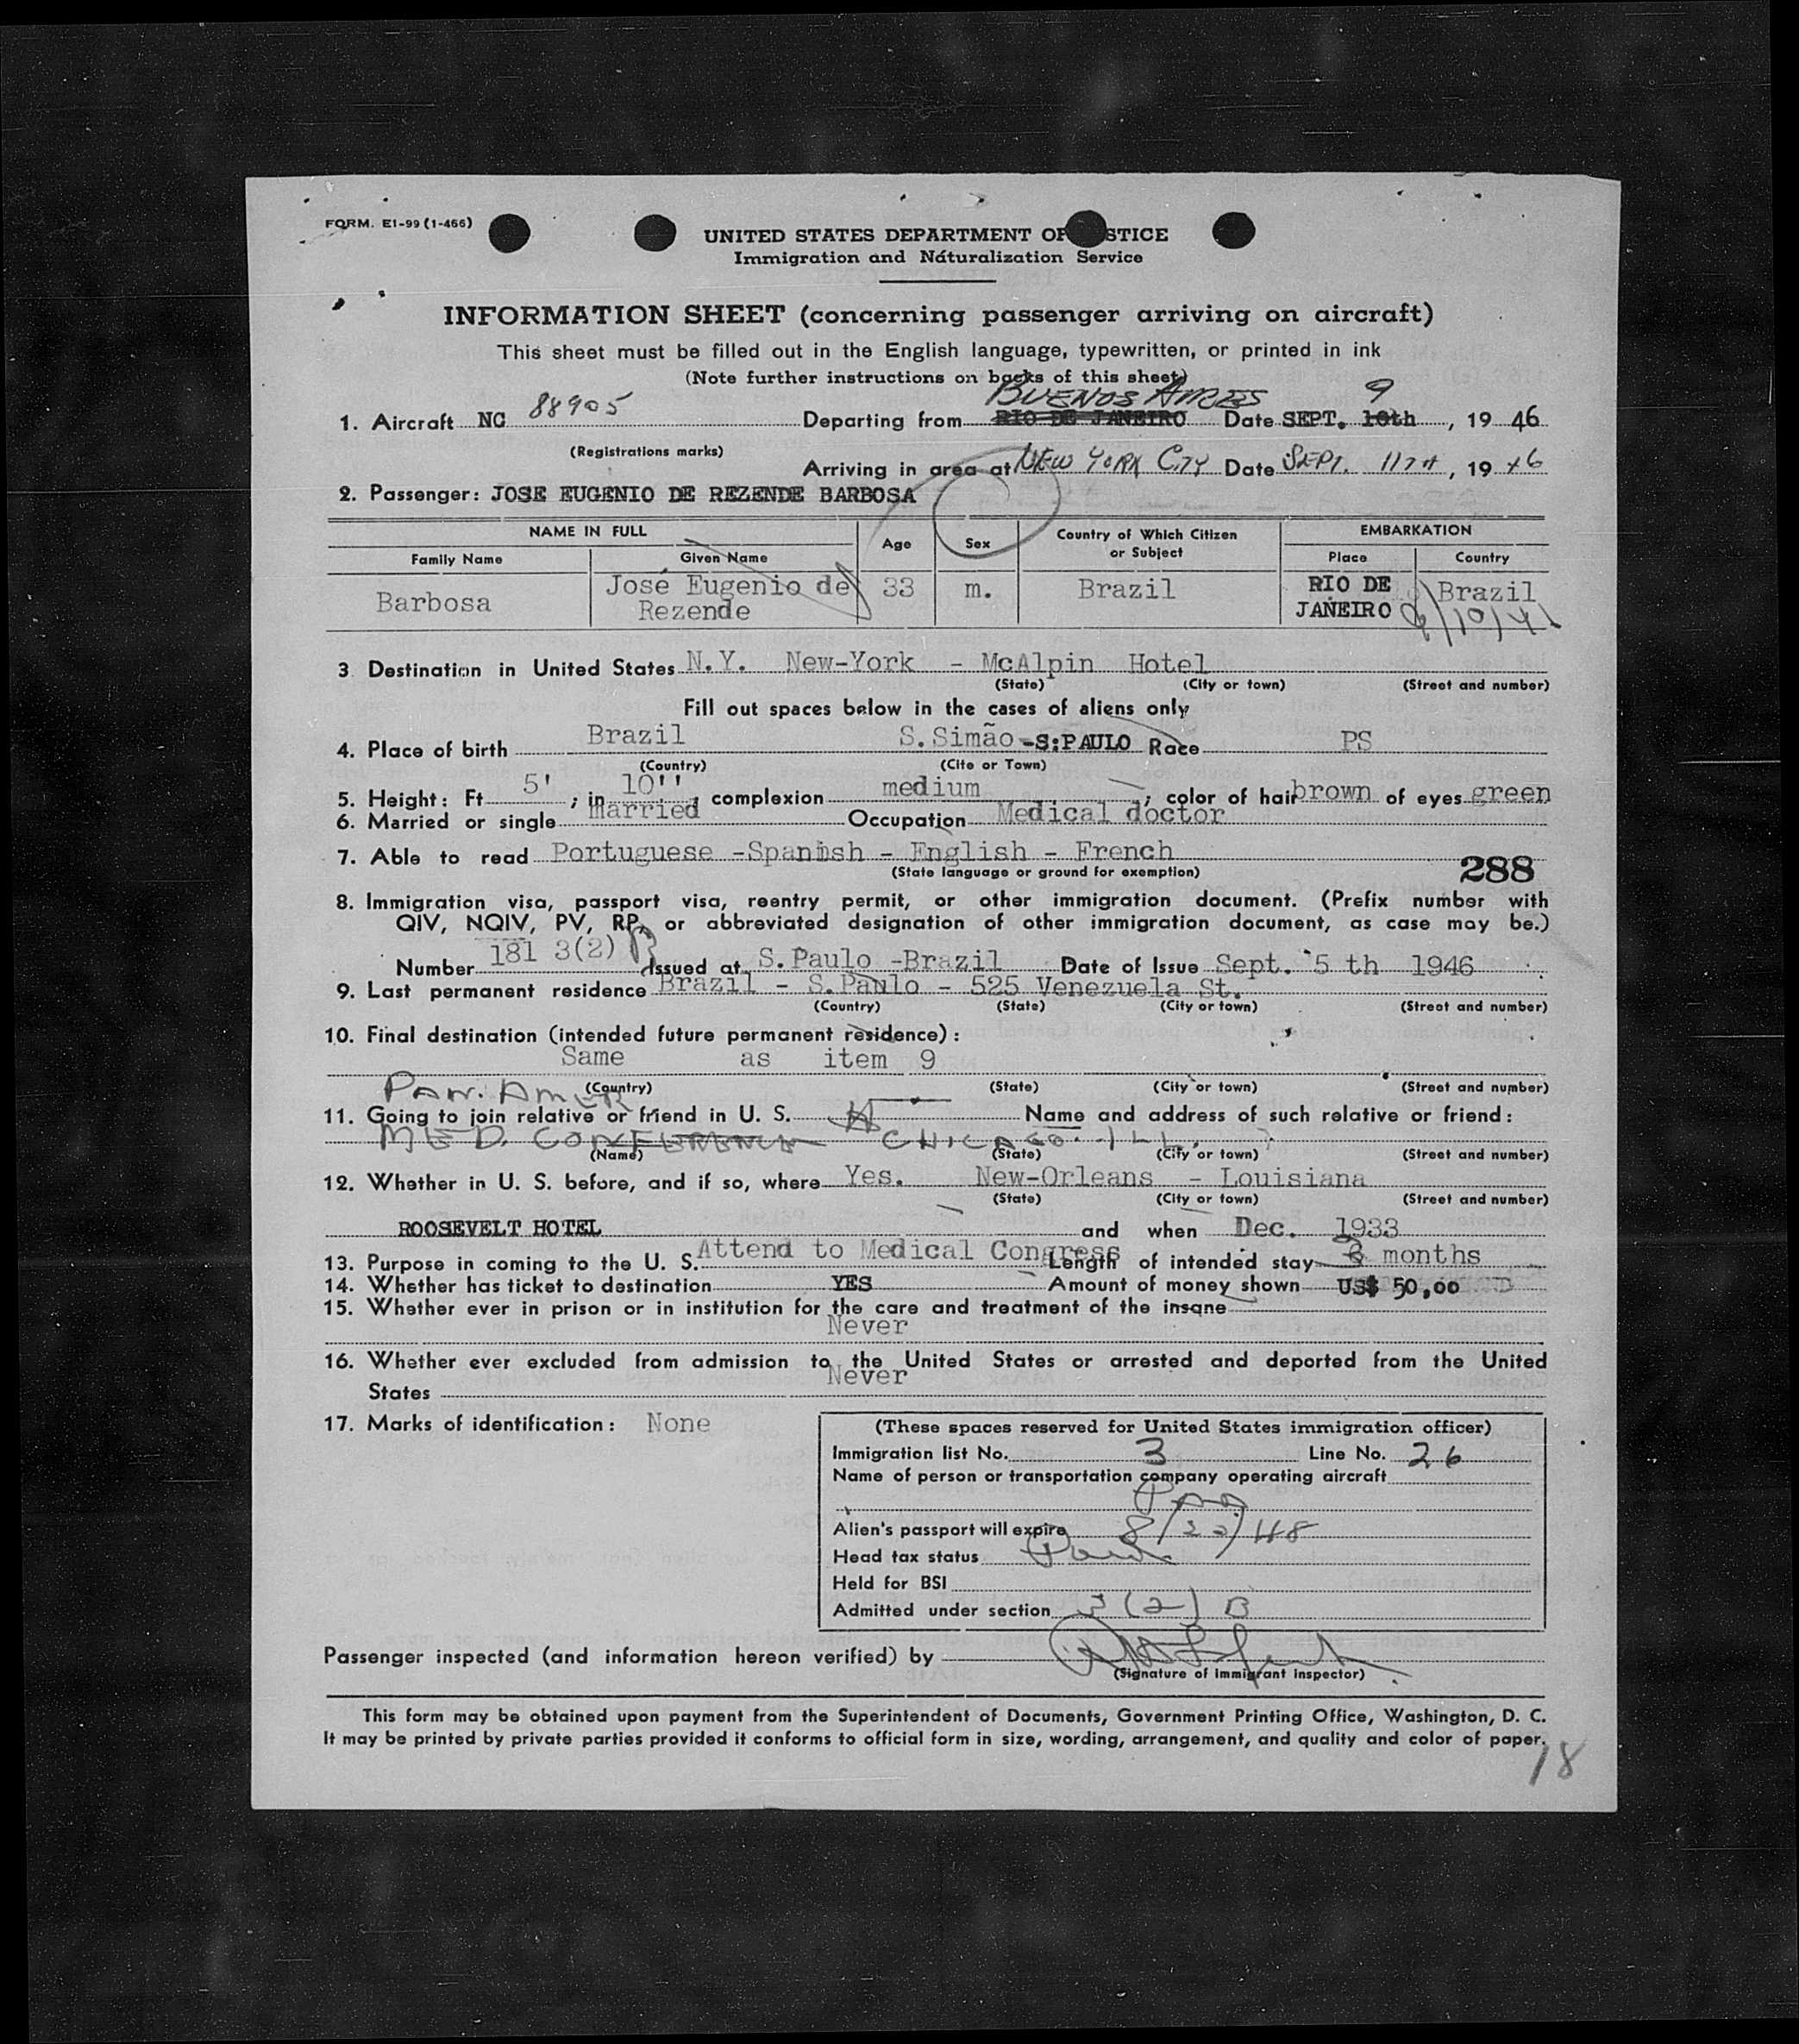 FORM. E1-99 (1-466)
UNITED STATES DEPARTMENT OF STICE
Immigration and Naturalization Service
INFORMATION SHEET (concerning passenger arriving on aircraft)
This sheet must be filled out in the English language, typewritten, or printed in ink
(Note further instructions on backs of this sheet)
BUENOS AIRES 9
1. Aircraft NC 88905 Departing from RIO DE JANEIRO Date SEPT. 10th, 19 46
(Registrations marks)
Arriving in area at NEW YORK CITY Date SEPT. 11TH, 19 46
2. Passenger: JOSE EUGENIO DE REZENDE BARBOSA
NAME IN FULL Age Sex Country of Which Citizen or Subject EMBARKATION
Family Name Given Name Place Country
Barbosa José Eugenio de Rezende 33 m. Brazil RIO DE JANEIRO Brazil
3 Destination in United States N.Y. New-York - McAlpin Hotel
(State) (City or town) (Street and number)
Fill out spaces below in the cases of aliens only
4. Place of birth Brazil S.Simão -S:PAULO Race PS
(Country) (Cite or Town)
5. Height: Ft 5' ; in 10'' , complexion medium ; color of hair brown of eyes green
6. Married or single married Occupation Medical doctor
7. Able to read Portuguese -Spanish - English - French
(State language or ground for exemption) 288
8. Immigration visa, passport visa, reentry permit, or other immigration document. (Prefix number with
QIV, NQIV, PV, RP, or abbreviated designation of other immigration document, as case may be.)
Number 181 3(2) B Issued at S.Paulo -Brazil Date of Issue Sept. 5 th 1946
9. Last permanent residence Brazil - S.Paulo - 525 Venezuela St.
(Country) (State) (City or town) (Street and number)
10. Final destination (intended future permanent residence) :
Same as item 9
(Country) (State) (City or town) (Street and number)
PAN. AMER
11. Going to join relative or friend in U. S. Name and address of such relative or friend :
MED. CONFERENCE CHICAGO. ILL.
(Name) (State) (City or town) (Street and number)
12. Whether in U. S. before, and if so, where Yes. New-Orleans - Louisiana
(State) (City or town) (Street and number)
ROOSEVELT HOTEL and when Dec. 1933
13. Purpose in coming to the U. S. Attend to Medical Congress Length of intended stay months
14. Whether has ticket to destination YES Amount of money shown US$ 50,00
15. Whether ever in prison or in institution for the care and treatment of the insane
Never
16. Whether ever excluded from admission to the United States or arrested and deported from the United
States Never
17. Marks of identification : None
(These spaces reserved for United States immigration officer)
Immigration list No. 3 Line No. 26
Name of person or transportation company operating aircraft
Alien's passport will expire 8/22/48
Head tax status
Held for BSI
Admitted under section 3 (2) B
Passenger inspected (and information hereon verified) by
(Signature of Immigrant inspector)
This form may be obtained upon payment from the Superintendent of Documents, Government Printing Office, Washington, D. C.
It may be printed by private parties provided it conforms to official form in size, wording, arrangement, and quality and color of paper.
18